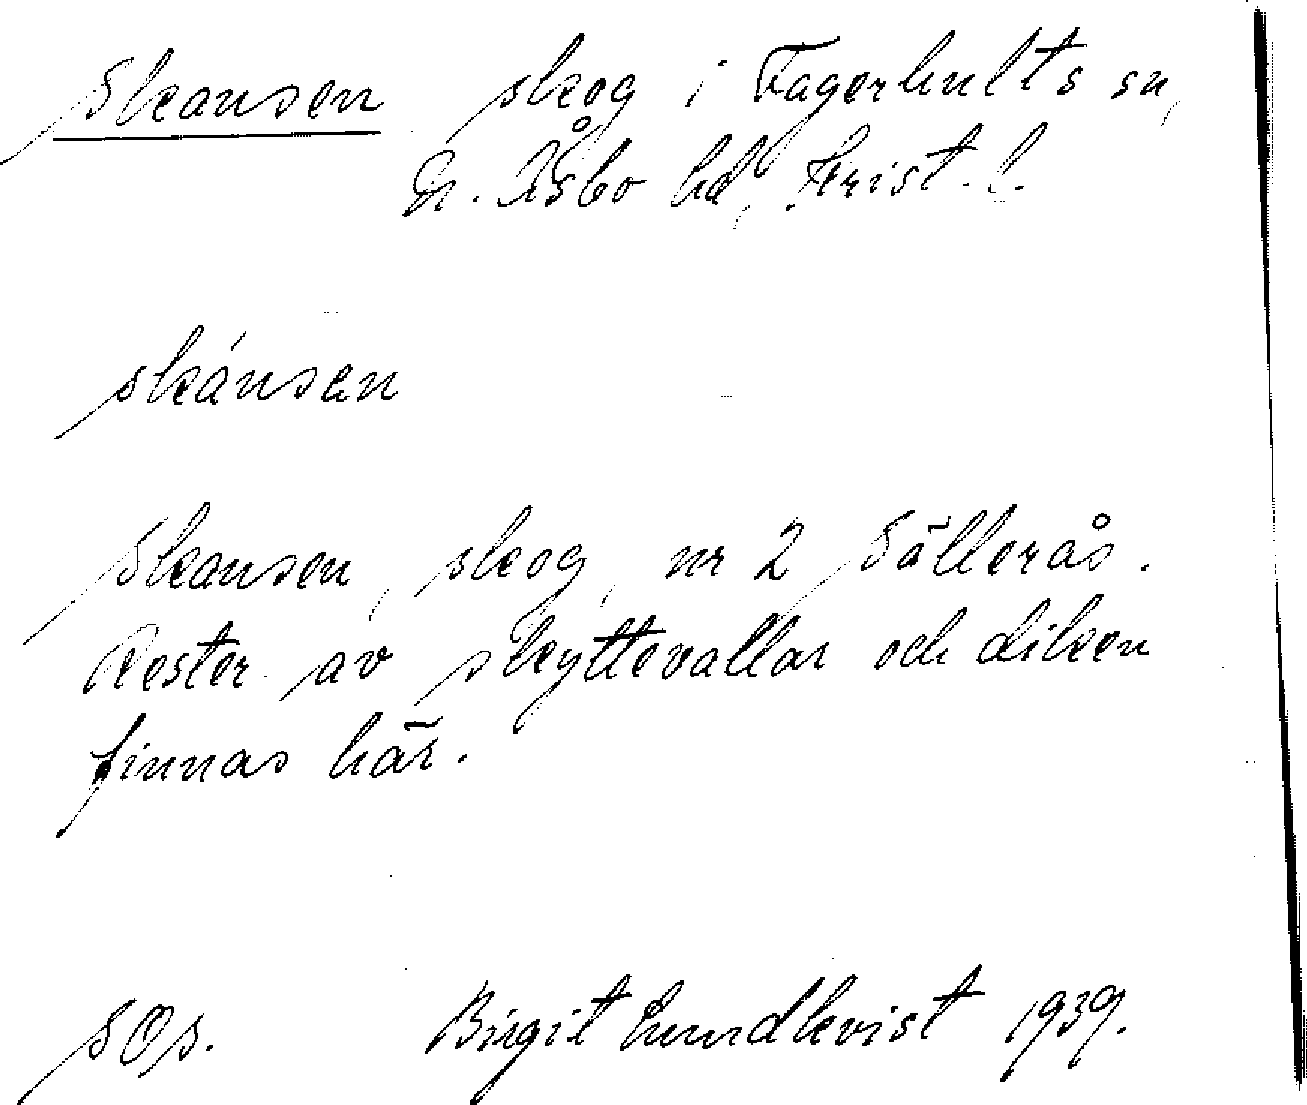 Skansen skog i Fagerhults sn,
N. Åsbo hd, Krist. l.
skánsen
Skansen, skog, nr 2 Sällerås.
Rester av skyttevallar och diken
finnas här.
SOs. Birgit Lundkvist 1939.